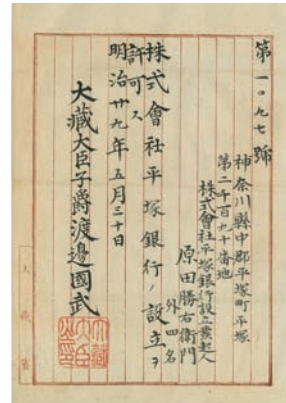 第一〇九七號
神奈川縣中郡平塚町平塚
第二千百九十番地
株式會社平塚銀行設立發起人
原田勝右衛門
外四名
株式會社平塚銀行ノ設立ヲ
許可ス
明治廿九年五月三十日
大藏大臣子爵渡邊國武
大藏大臣之印
大藏省